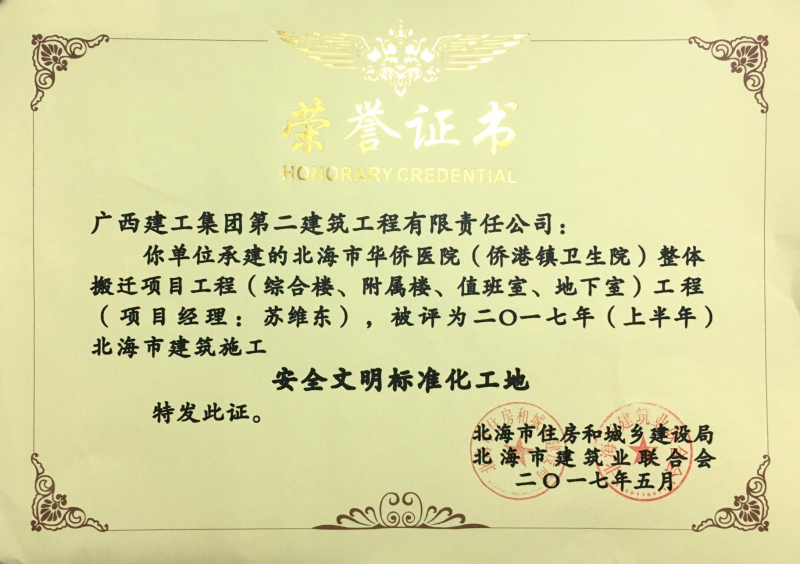 荣誉证书
HONORARY CREDENTIAL
广西建工集团第二建筑工程有限责任公司：
你单位承建的北海市华侨医院（侨港镇卫生院）整体
搬迁项目工程（综合楼、附属楼、值班室、地下室）工程
（项目经理：苏维东），被评为二〇一七年（上半年）
北海市建筑施工
安全文明标准化工地
特发此证。
北海市住房和城乡建设局
北海市建筑业联合会
二〇一七年五月